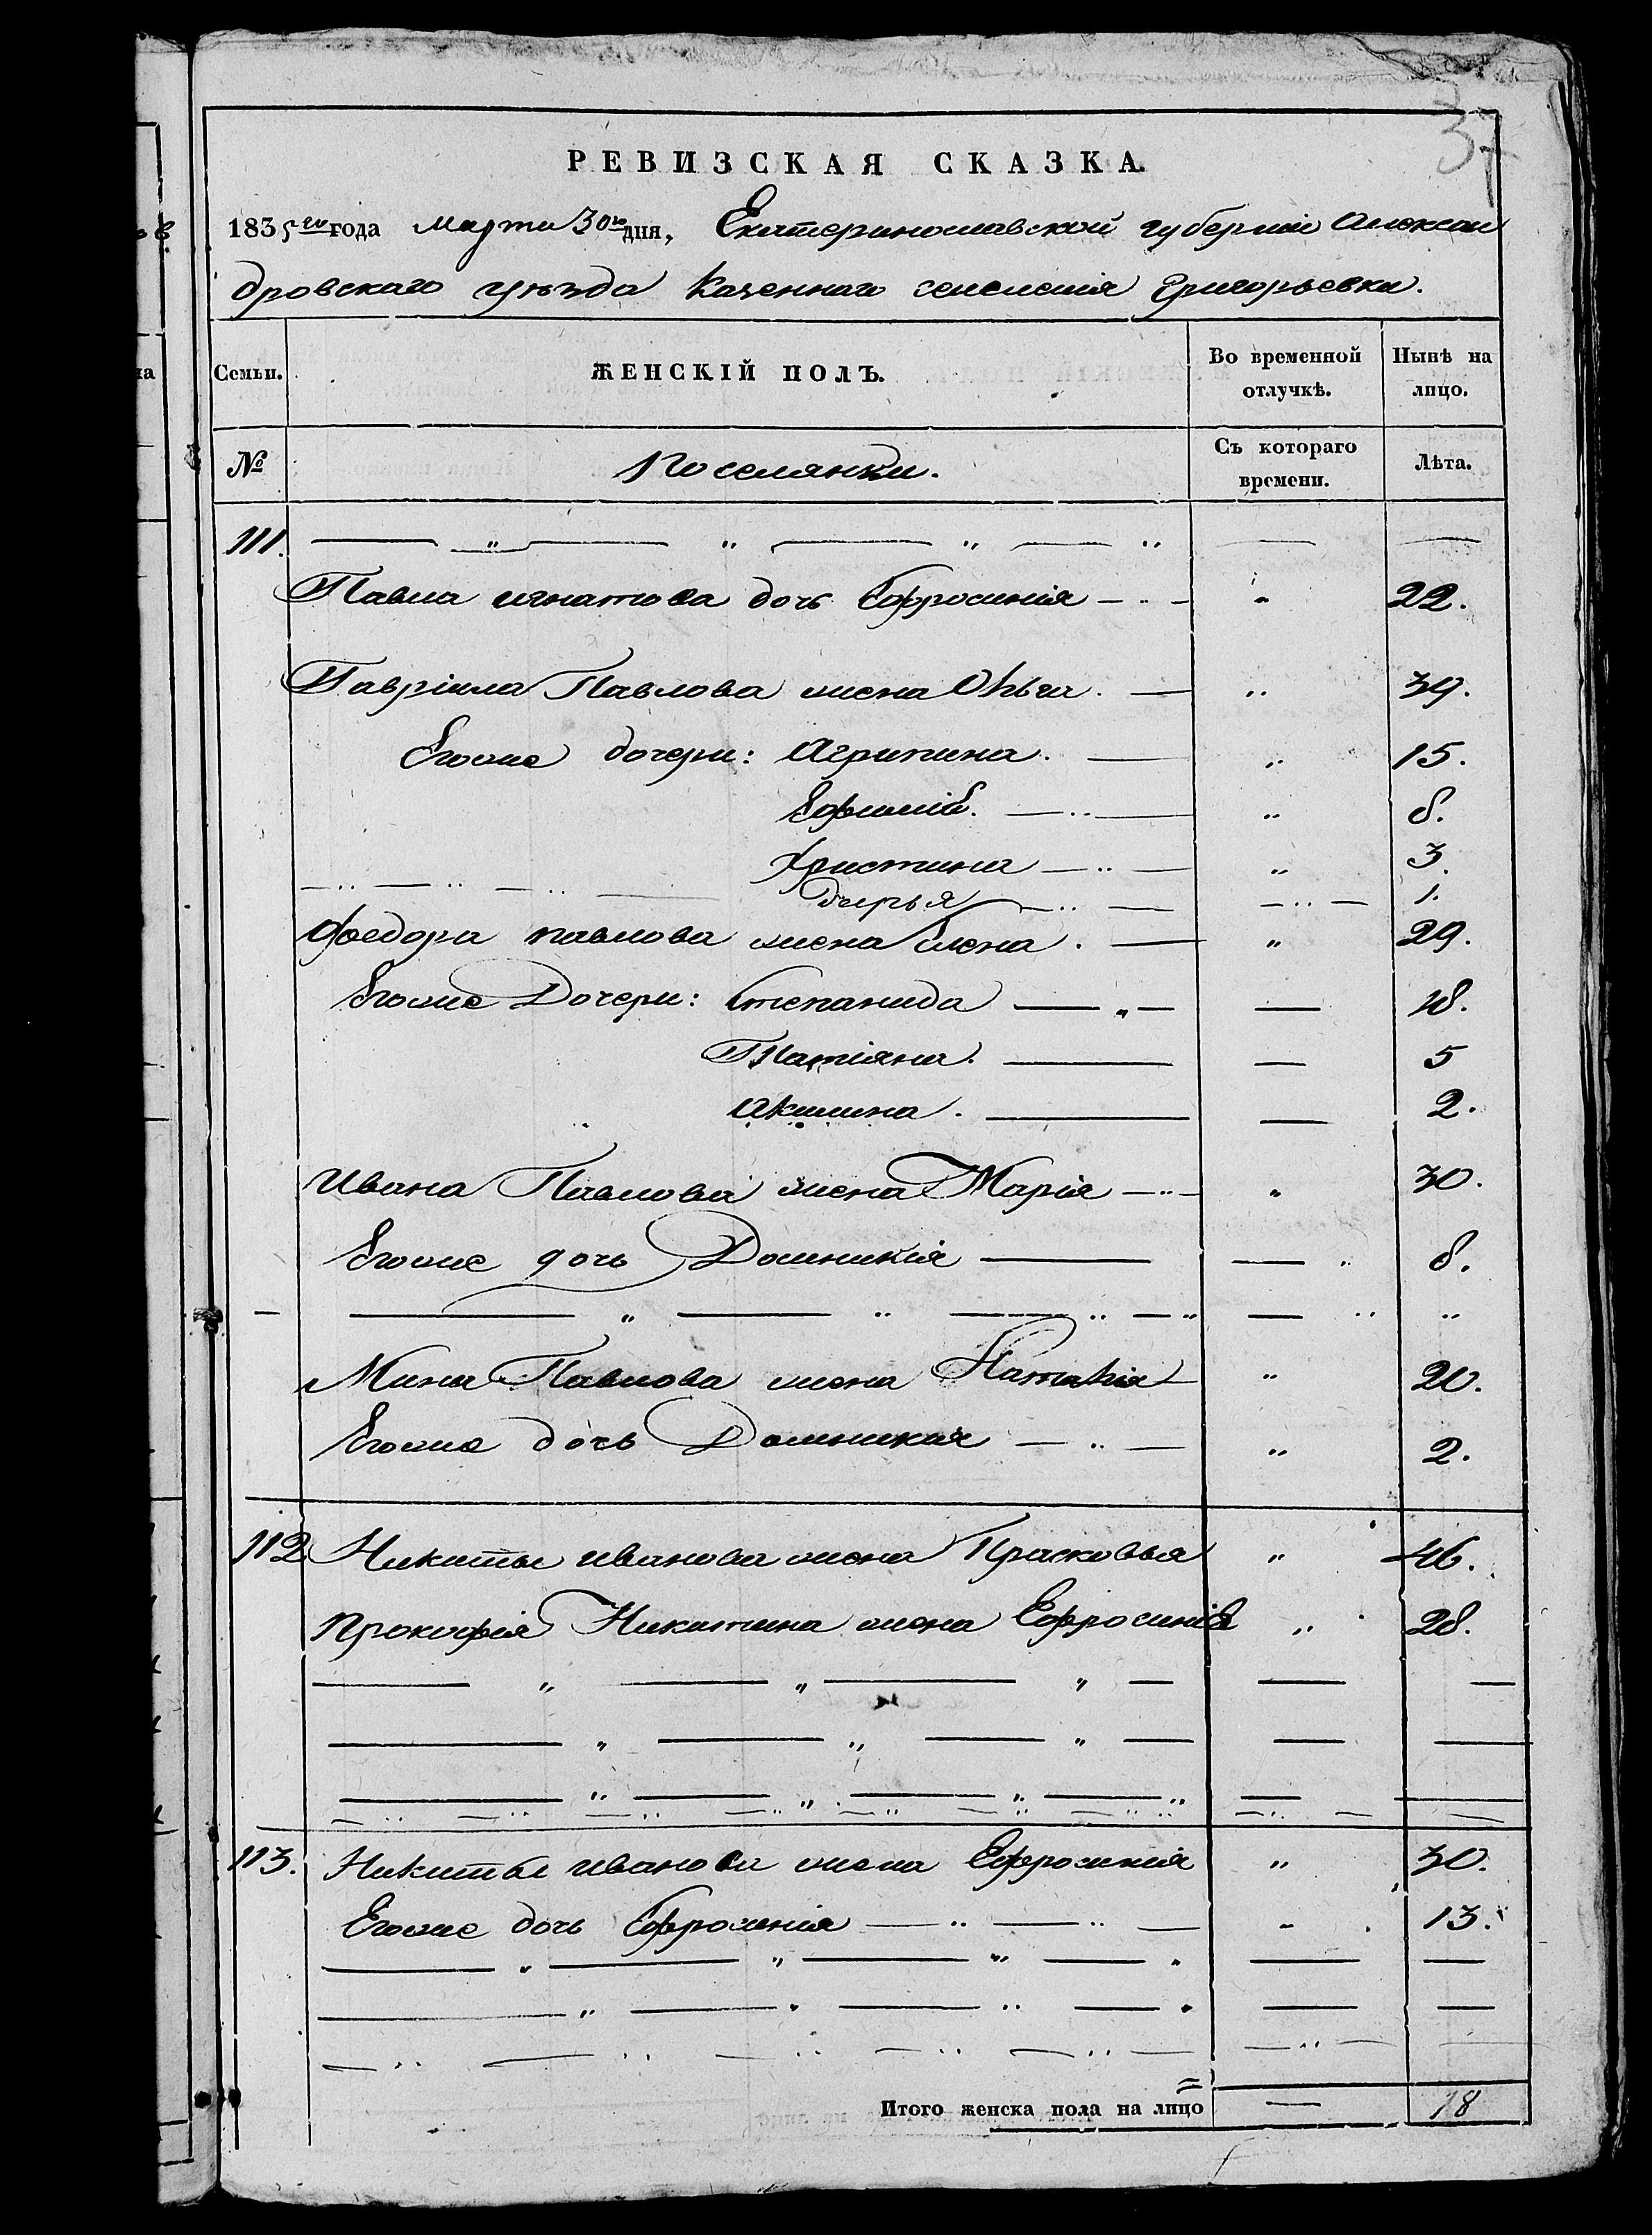 37
РЕВИЗСКАЯ СКАЗКА.
1835го года Марта 30го дня, Екатеринославской губерніи Алексан
дровскаго уѣзда Казеннаго селенія Григорьевки.
Семьи. ЖЕНСКІЙ ПОЛЪ. Во временной отлучкѣ. Нынѣ на лицо.
№ Поселянки. Съ котораго времени. Лѣта.
111. — „ — „ — „ — „ — —
Павла игнатова дочь Ефросинія — „ — „ 22.
Гавріила Павлова жена Ольга. — „ 39.
Егоже дочери: Агрипина. — „ 15.
Ефимія. — „ — „ 8.
Христина — „ — „ 3.
Дарья — „ — — „ — 1.
Федора павлова жена Елена. — „ 29.
Егоже Дочери: Степанида — „ — — 18.
Татіяна. — — 5
Акилина. — — 2.
Ивана Павлова жена Марія — „ — „ 30.
Егоже дочь Домникія — — „ 8.
— — „ — „ — „ — „ — „ „
Мины Павлова жена Наталія — „ 20.
Егоже дочь Домникія — „ — „ 2.
112. Никиты иванова жена Прасковья „ 46.
Прокофія Никитина жена Ефросинія „ 28.
— „ — „ — „ — — —
— „ — „ — „ — — —
— „ — „ — „ — „ — —
— „ — „ — „ — „ — „ — „ — „ — „ — —
113. Никиты иванова жена Ефросинія „ 30.
Егоже дочь Ефросинія — „ — „ — „ 13.
— „ — „ — „ — „ — —
— „ — „ — „ — „ — —
— „ — „ — „ — „ — „ — — „ — —
Итого женска пола на лицо — 18